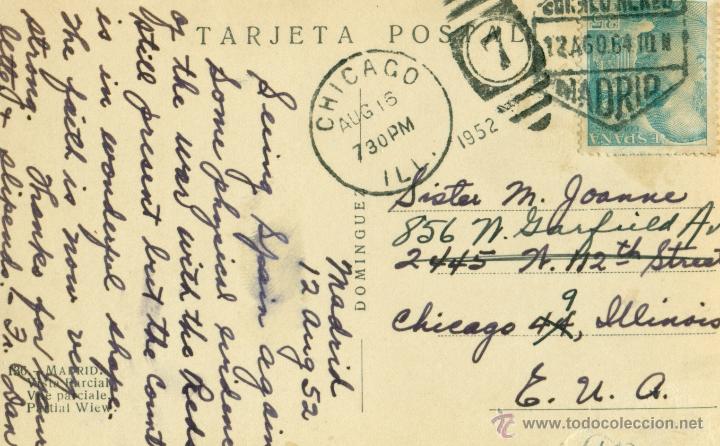 TARJETA POSTAL
CORREO AEREO
12 AGO 64 10 N
MADRID
ESPAÑA
7
CHICAGO
AUG 16
730 PM
1952
ILL.
Madrid
12 Aug 52
Seeing Spain again
Some physical evidence
of the war with the Reds
still present but the count
is in wonderful shape.
The faith is now very
strong. Thanks for your
letter & stipends. Fr. Dan
DOMINGUEZ
Sister M. Joanne
856 N. Garfield Av
2445 N. 112th Street
Chicago 44, Illinois
9
E. U. A.
136.- MADRID.
Vista Parcial
Vue parciale.
Partial Wiew.
www.todocoleccion.net